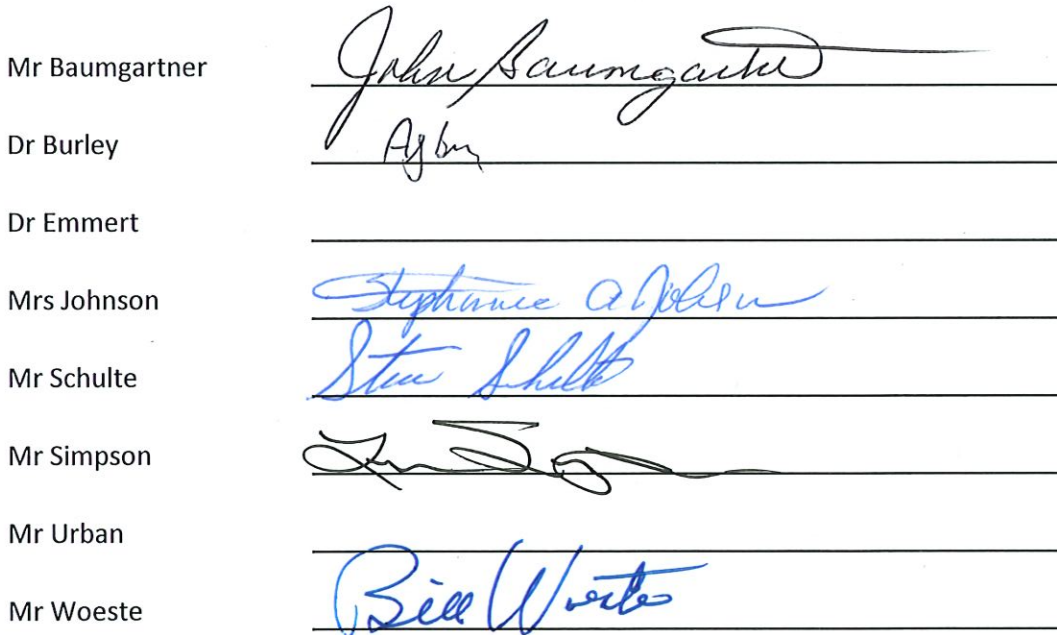 Mr Baumgartner John Baumgartner
Dr Burley
Dr Emmert
Mrs Johnson Stephanie A Johnson
Mr Schulte Steve Schulte
Mr Simpson
Mr Urban
Mr Woeste Bill Woeste